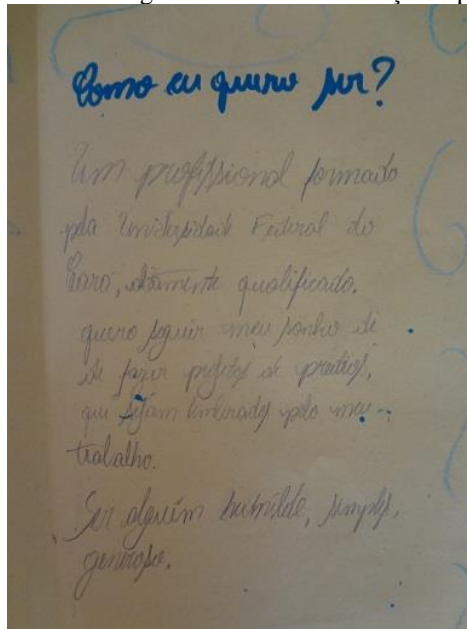 Como eu quero ser?
Um profissional formado
pela Universidade Federal do
Ceará, altamente qualificado.
quero seguir meu sonho de
de fazer projetos de prédios,
que sejam lembrados pelo meu
trabalho.
Ser alguém humilde, simples,
generoso.